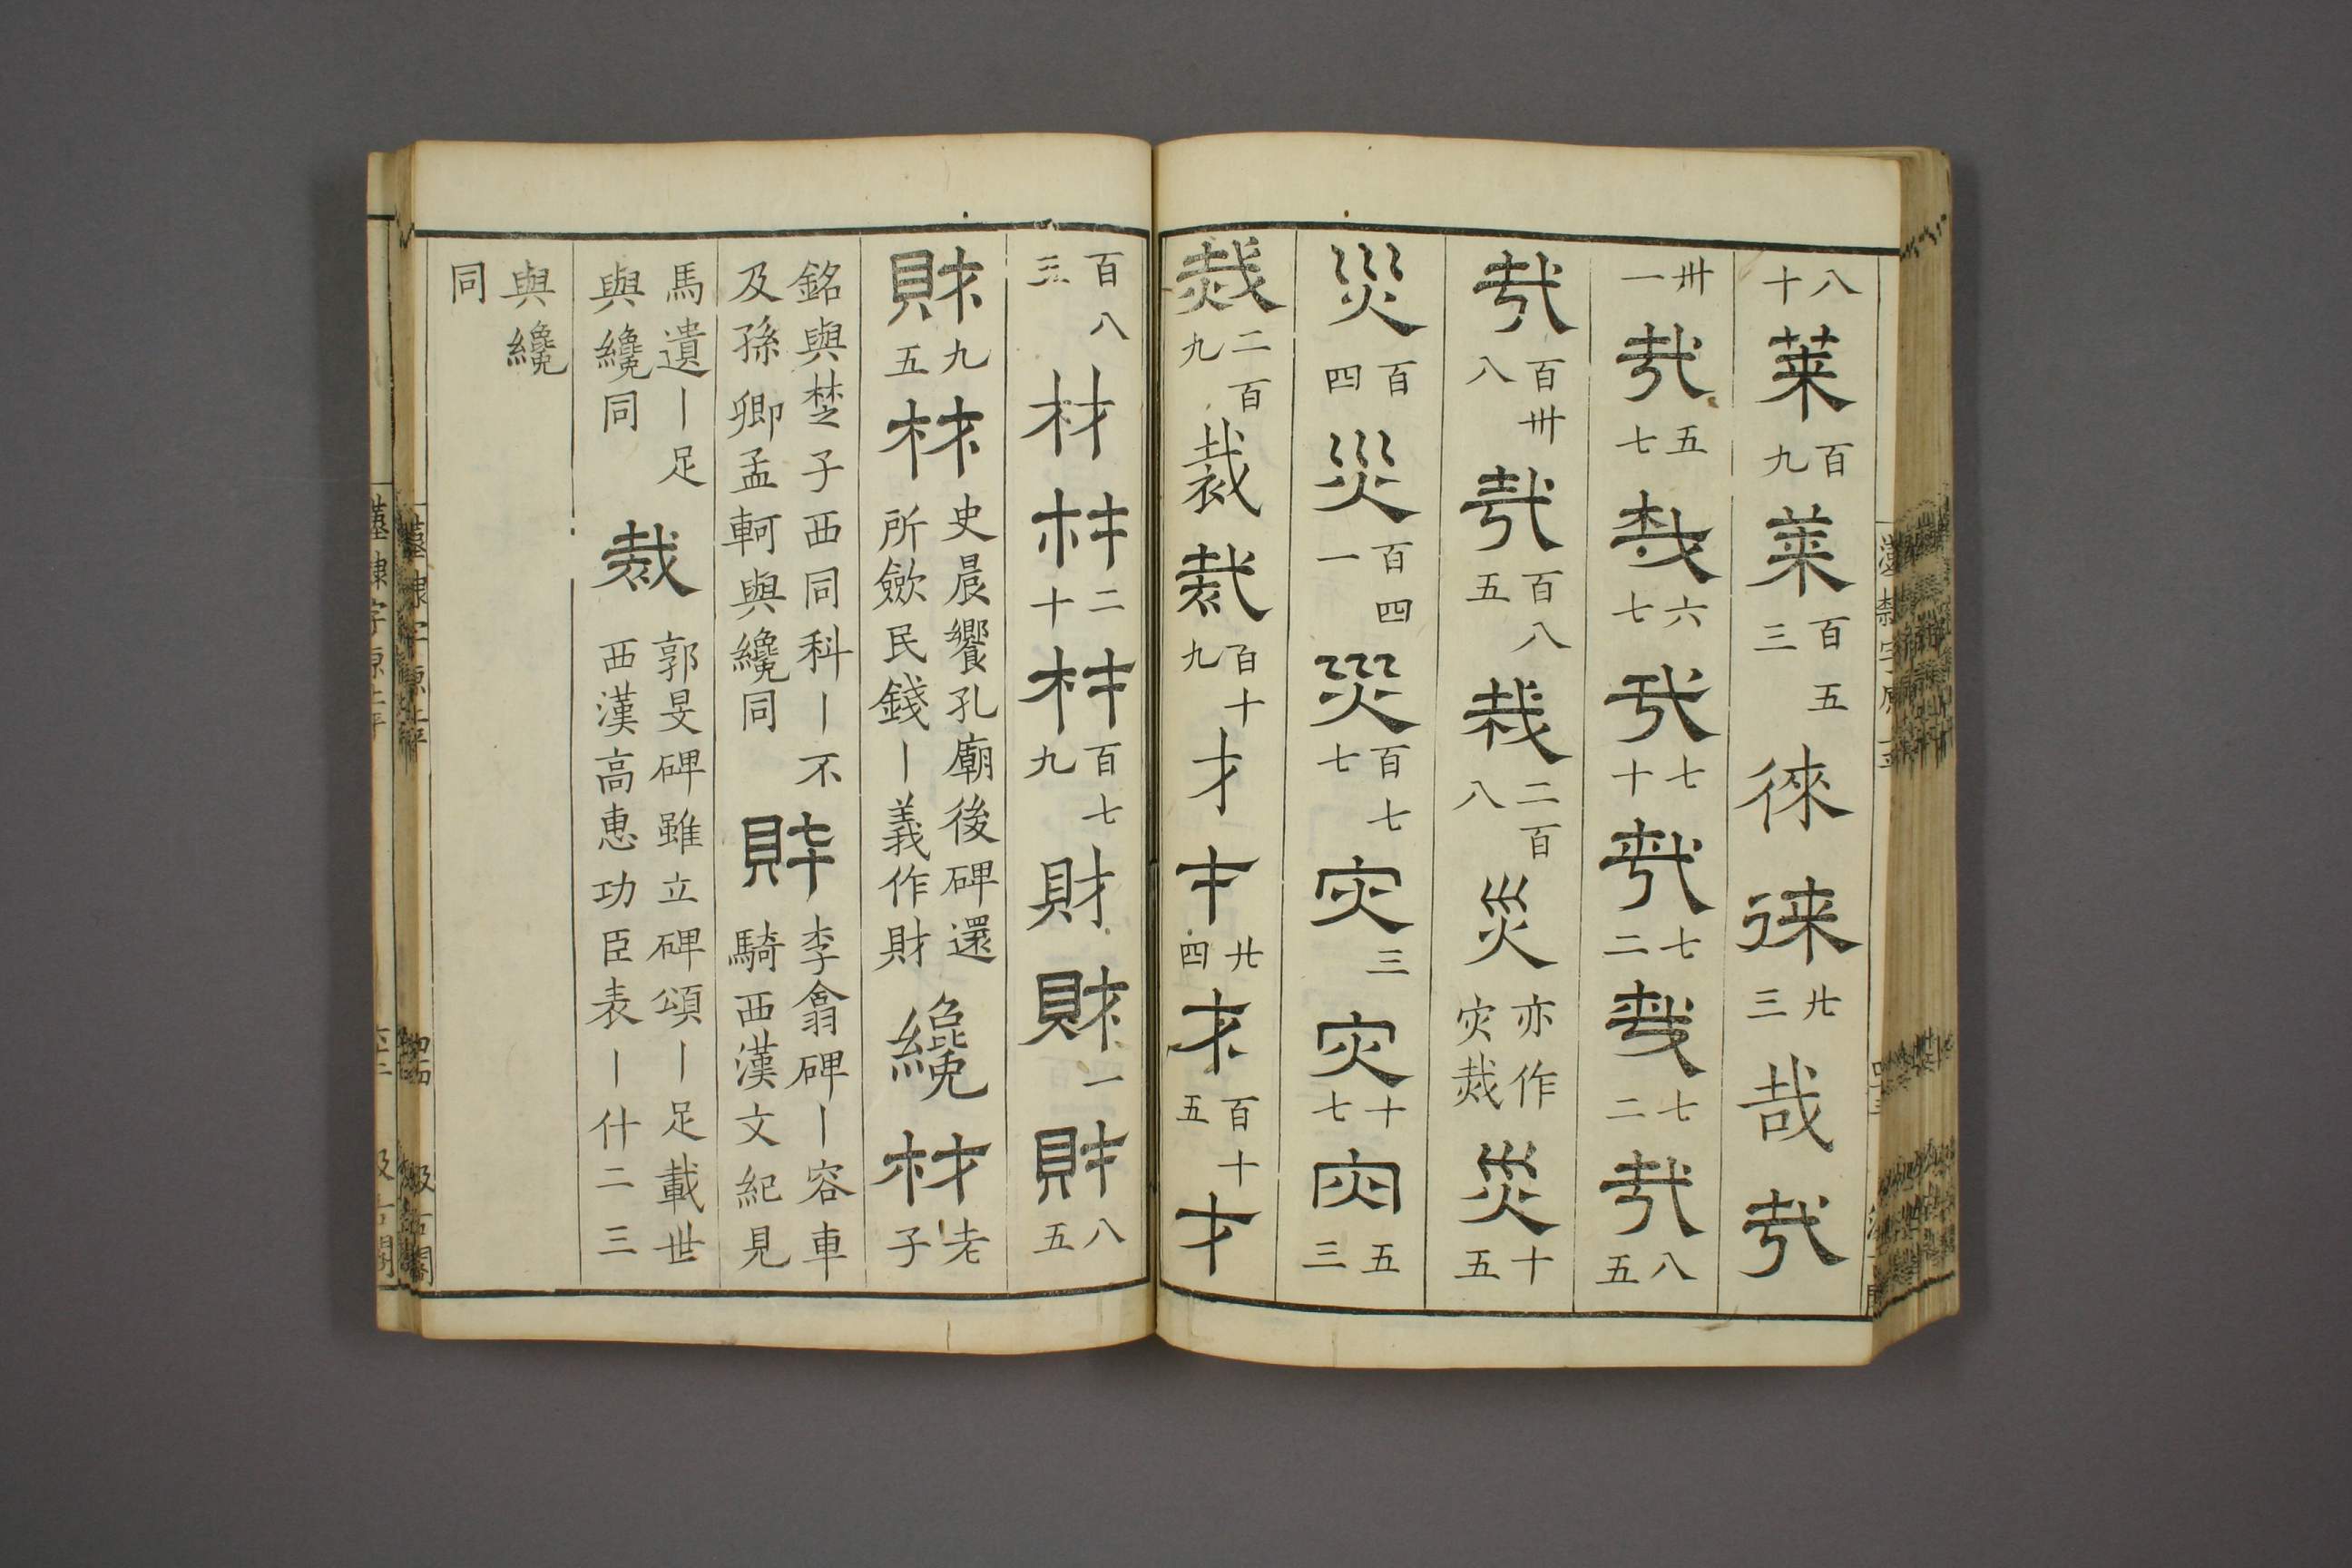 八十萊百九萊百五三徠徠廿三哉哉
卅一哉五七哉六七哉七十哉七二哉七二哉八五
哉百卅八哉百八五栽二百八災亦作灾烖災十五
災百四災百四一災百七七灾三灾十七灾五三
烖二百九裁裁百十九才才廿四才百十五才
百八三材材二十材百七九財財一財八五
財九五材史晨饗孔廟後碑還所斂民錢丨義作財纔材老子
銘與楚子西同科丨不及孫卿孟軻與纔同財李翕碑丨容車騎西漢文紀見
馬遺丨足與纔同裁郭旻碑雖立碑頌丨足載世西漢高惠功臣表丨什二三
與纔同
漢隸字原上平
汲古閣